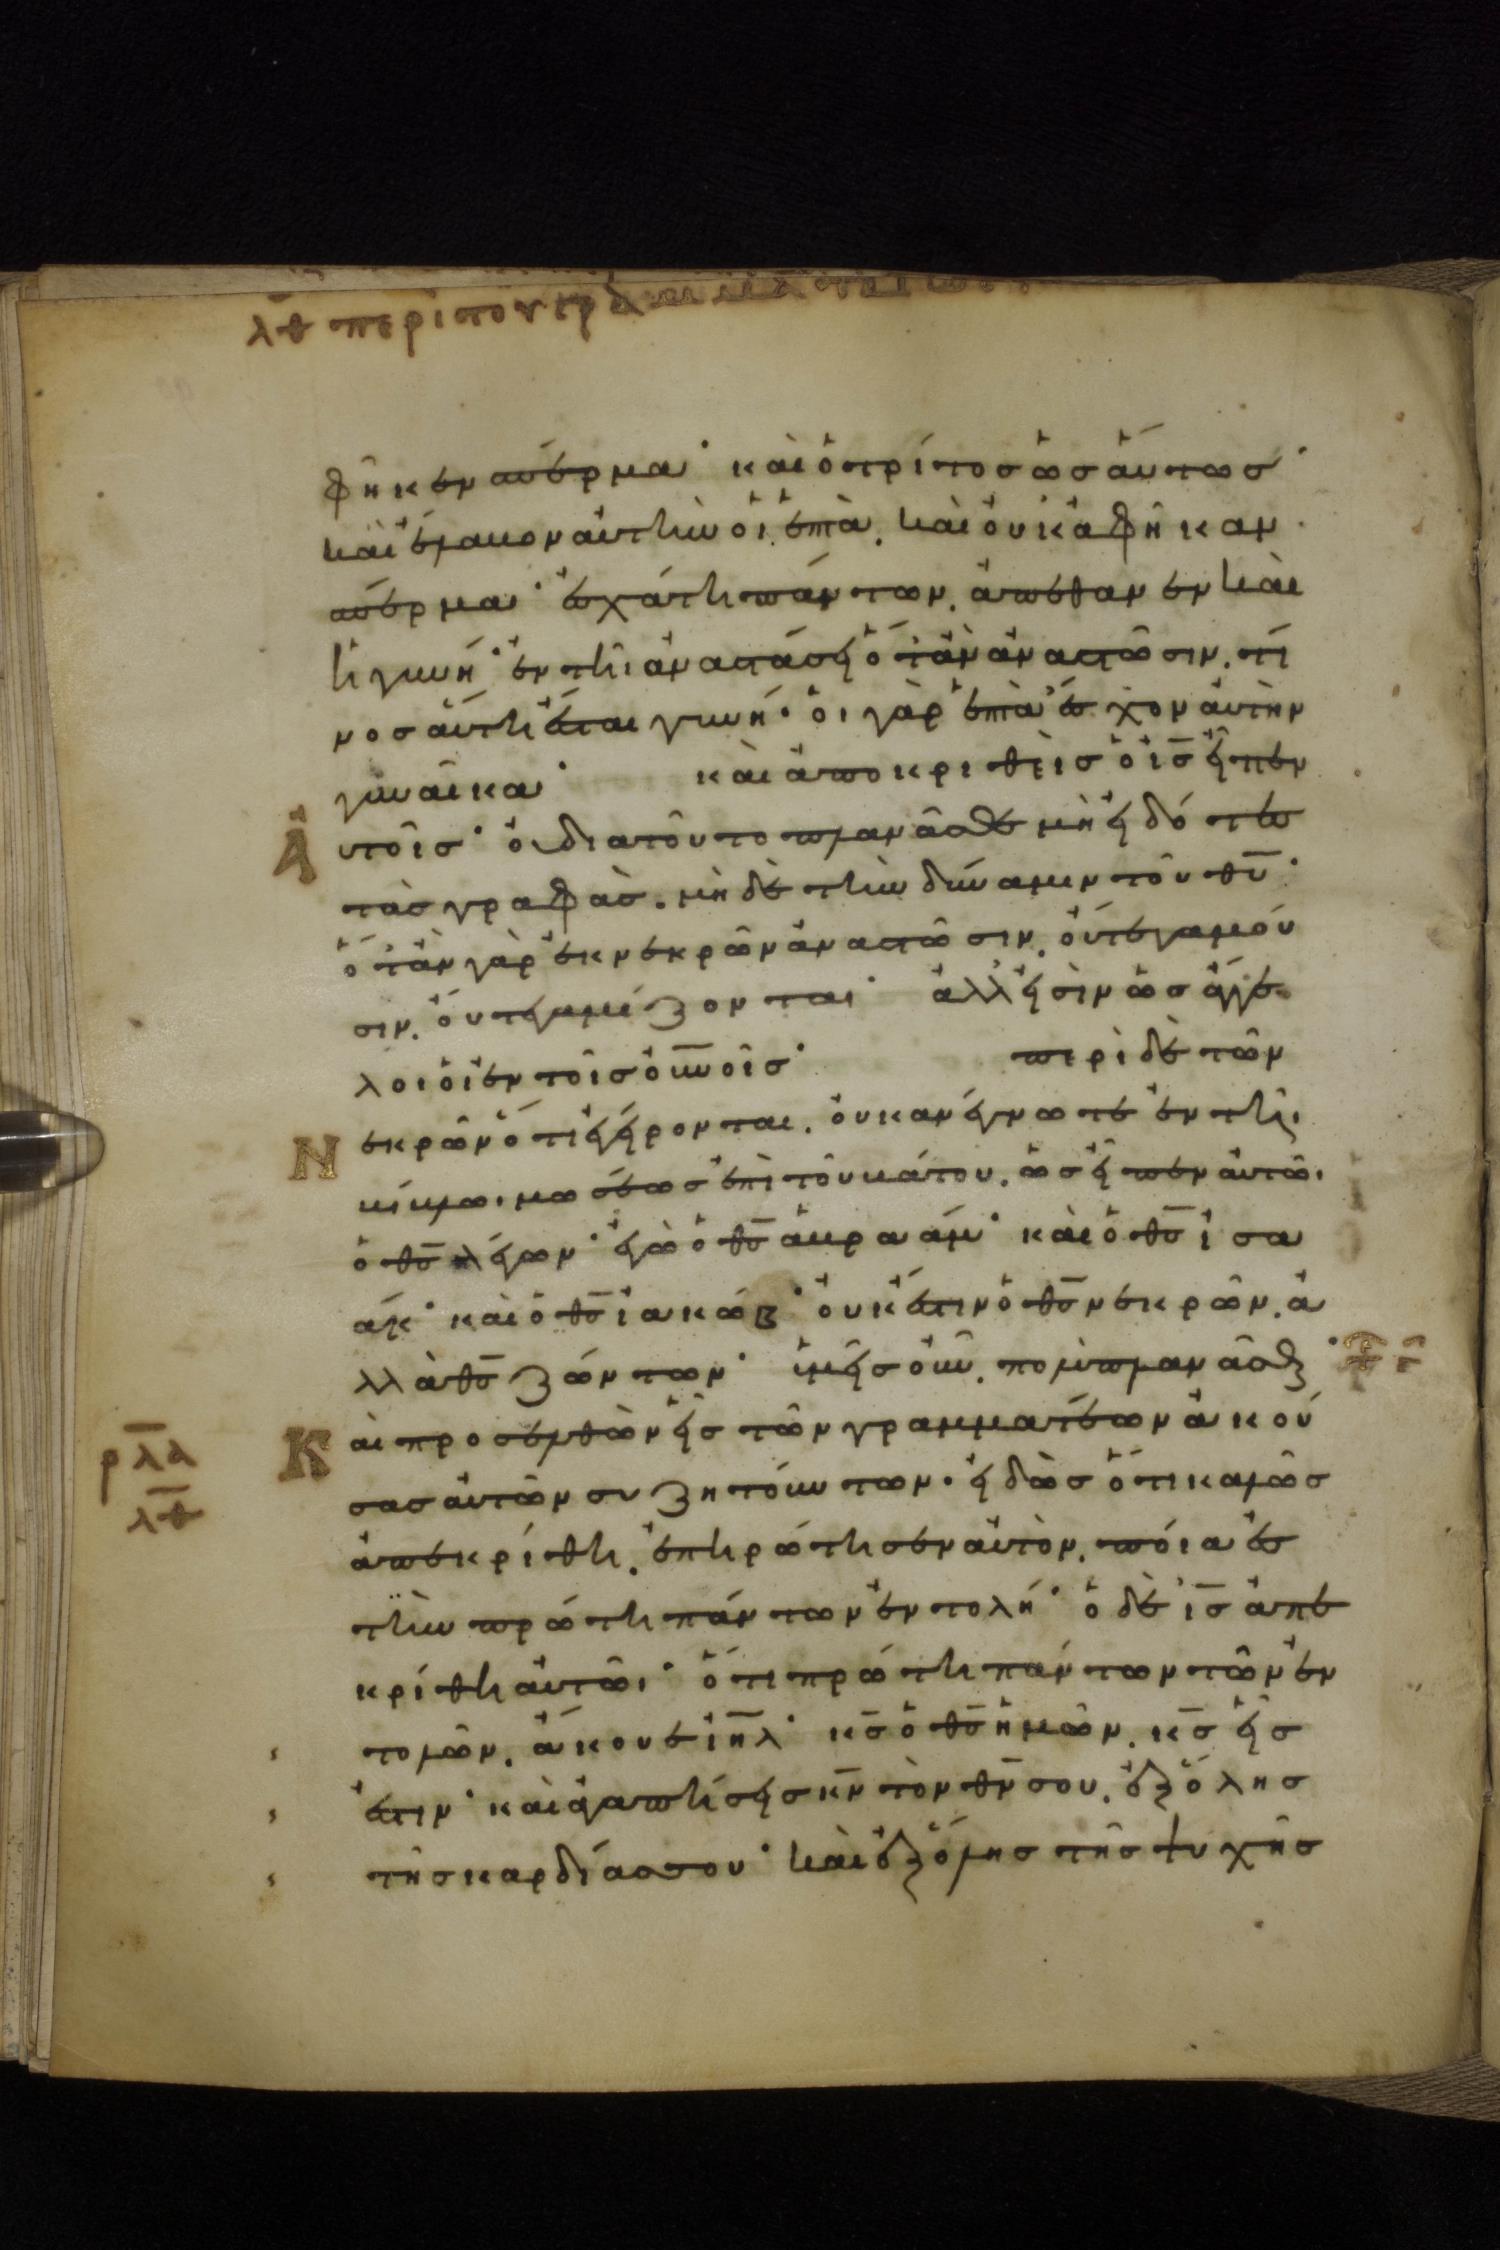 λθ περὶ του γρα
φῆκεν σπέρμα· καὶ ὁ τρίτος ὡσαύτως·
καὶ ἔλαβον αὐτὴν οἱ ἑπτὰ. καὶ οὐκ ἀφῆκαν
σπέρμα· ἐσχάτη πάντων. ἀπέθανεν καὶ
ἡ γυνή· ἐν τῆι ἀναστάσει ὅτἂν ἀναστῶσιν. τί
νος αὐτῆ ἔσται γυνή· οἱ γὰρ ἑπτὰ ἔσχον αὐτὴν
γυναῖκα· καὶ ἀποκριθεὶς ὁ ις̅ εἶπεν
Ἀ
υτοῖς· οὐ διατοῦτο πλανᾶσθε μὴ εἰδότες
τὰς γραφὰς. μὴ δὲ τὴν δύναμιν τοῦ θυ̅·
ὅτἂν γὰρ ἐκ νεκρῶν ἀναστῶσιν. οὔτε γαμοῦ
σιν. οὔτε γαμίζονται· ἀλλ εἰσὶν ὡς ἄγγε
λοι οἱ ἐν τοῖς οὐνοῖς· περὶ δὲ τῶν
Ν
εκρῶν ὅτι ἐγείρονται. οὐκ ἀνέγνωτε ἐν τῆι
βίβλωι μωσέως ἐπὶ τοῦ βάτου. ὡς εἶπεν αὐτῶι
ὁ θς̅ λέγων· ἐγὼ ὁ θς̅ ἀβραάμ· καὶ ὁ θς̅ ἰσα
άκ· καὶ ὁ θς̅ ἰακώβ· οὐκ ἔστιν ὁ θς̅ νεκρῶν. ἀ
λλὰ θς̅ ζώντων· ὑμεῖς οὖν. πολὺ πλανᾶσθε·
Κ
αὶ προσελθὼν εἷς τῶν γραμματέων ἀκού
ρλα
λθ
σας αὐτῶν συζητούντων. εἰδὼς ὅτι καλῶς
ἀπεκρίθη. ἐπηρώτησεν αὐτὸν. ποία ἐσ
τὶν πρώτη πάντων ἐντολή· ὁ δὲ ις̅ ἀπε
κρίθη αὐτῶι· ὅτι πρώτη πάντων τῶν ἐν
τολῶν. ἄκουε ιη̅λ· κς̅ ὁ θς̅ ἡμῶν. κς̅ εἷς
ἐστιν· καὶ ἀγαπήσεις κν̅ τὸν θν̅ σου. ἐξ ὅλης
τῆς καρδίας σου· καὶ ἐξ ὅλης τῆς ψυχῆς